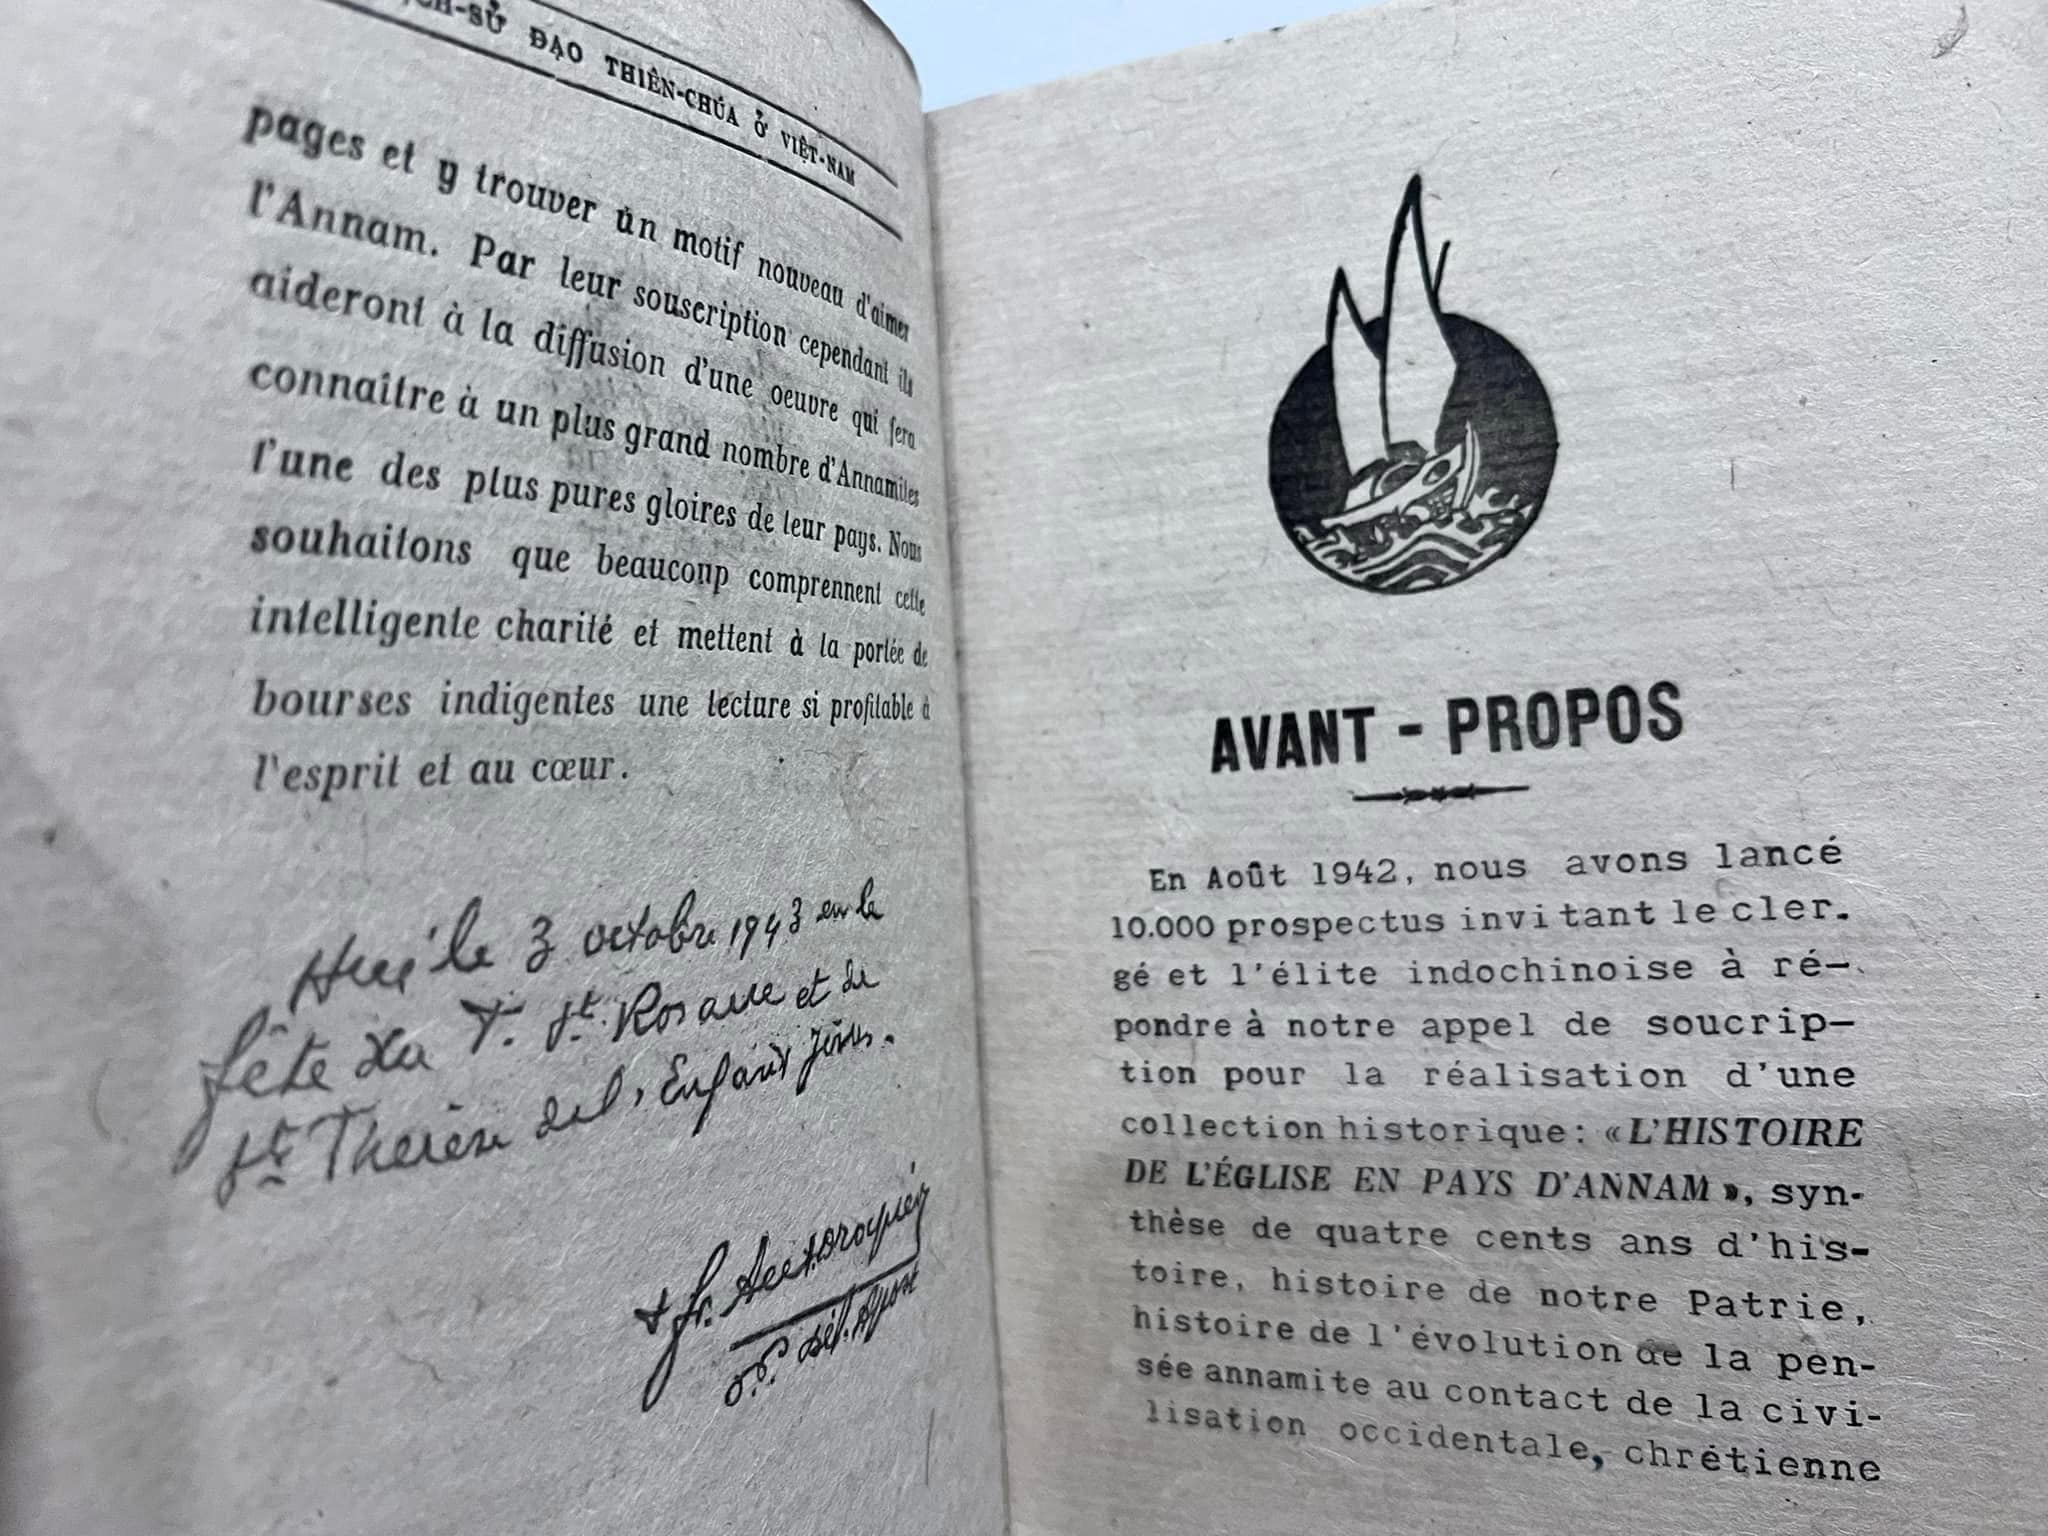 ỊCH-SỬ ĐẠO THIÊN-CHÚA Ở VIỆT-NAM
pages et y trouver un motif nouveau d'aimer
l'Annam. Par leur souscription cependant ils
aideront à la diffusion d'une oeuvre qui fera
connaître à un plus grand nombre d'Annamites
l'une des plus pures gloires de leur pays. Nous
souhaitons que beaucoup comprennent cette
intelligente charité et mettent à la portée de
bourses indigentes une lecture si profitable à
l'esprit et au cœur.
Hué le 3 octobre 1943 en la
fête du T. St. Rosaire et de
St Thérèse de l'Enfant Jésus.
+ fr. 
dél. apost
AVANT - PROPOS
En Août 1942, nous avons lancé
10.000 prospectus invitant le cler-
gé et l'élite indochinoise à ré-
pondre à notre appel de soucrip-
tion pour la réalisation d'une
collection historique: «L'HISTOIRE
DE L'ÉGLISE EN PAYS D'ANNAM», syn-
thèse de quatre cents ans d'his-
toire, histoire de notre Patrie,
histoire de l'évolution de la pen-
sée annamite au contact de la civi-
lisation occidentale, chrétienne